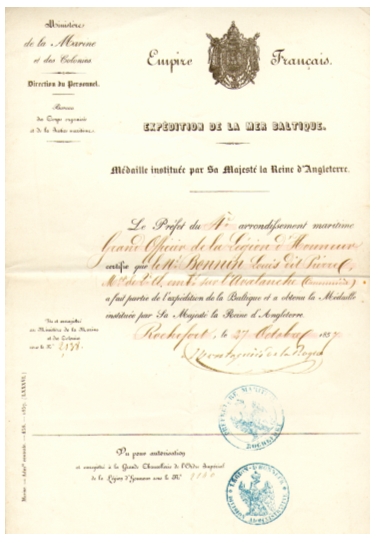 Ministère
de la Marine
et des Colonies.
Direction du Personnel.
Bureau
des Corps organisés
et de la Justice maritime.
Empire Français.
EXPÉDITION DE LA MER BALTIQUE.
Médaille instituée par Sa Majesté la Reine d'Angleterre.
Le Préfet du 4e arrondissement maritime
Grand Officier de la Légion d'Honneur
certifie que le Bonnin Louis dit Pierre
sur l'Avalanche
a fait partie de l'expédition de la Baltique et a obtenu la Médaille
instituée par Sa Majesté la Reine d'Angleterre.
Rochefort, le 27 Octobre 1857
Vu et enregistré
au Ministère de la Marine
et des Colonies
sous le N°
Vu pour autorisation
et enregistré à la Grande Chancellerie de l'Ordre Impérial
de la Légion d'Honneur sous le N°